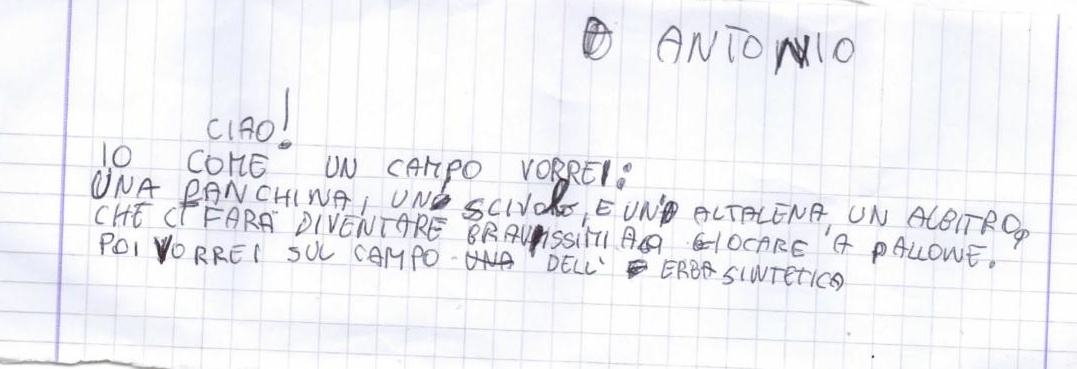 ANTONIO
CIAO!
IO COME UN CAMPO VORREI:
UNA PANCHINA, UNO SCIVOLO, E UN'ALTALENA, UN ALBITRO,
CHE CI FARÀ DIVENTARE BRAVISSIMI A GIOCARE A PALLONE.
POI VORREI SUL CAMPO DELL'ERBA SINTETICA